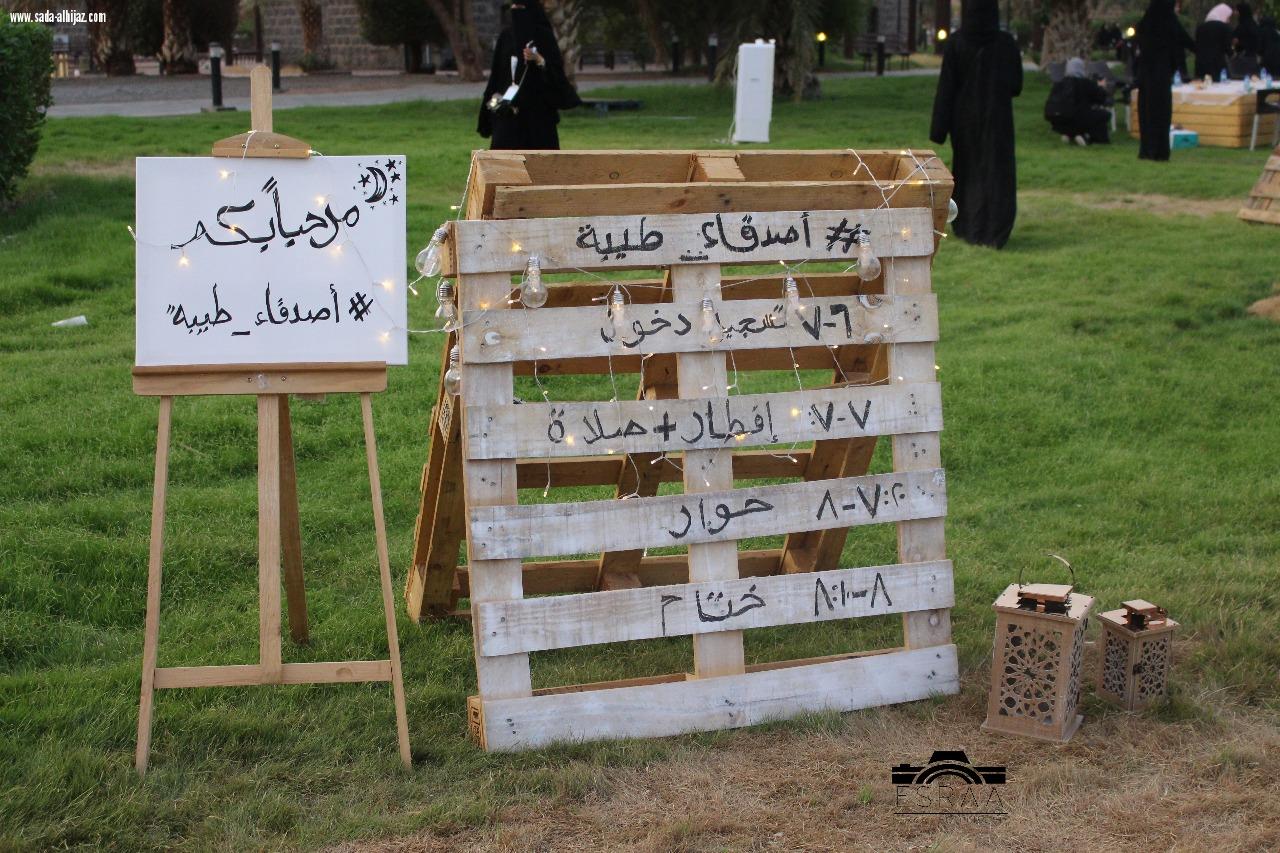 www.sada-alhijaz.com
مرحباً بكم
#أصدقاء_طيبة
#أصدقاء_طيبة
٦-٧ تسجيل دخول
٧-٧:٢٠ إفطار+صلاة
٧:٢٠-٨ حوار
٨-٨:١٠ ختام
ESRAA